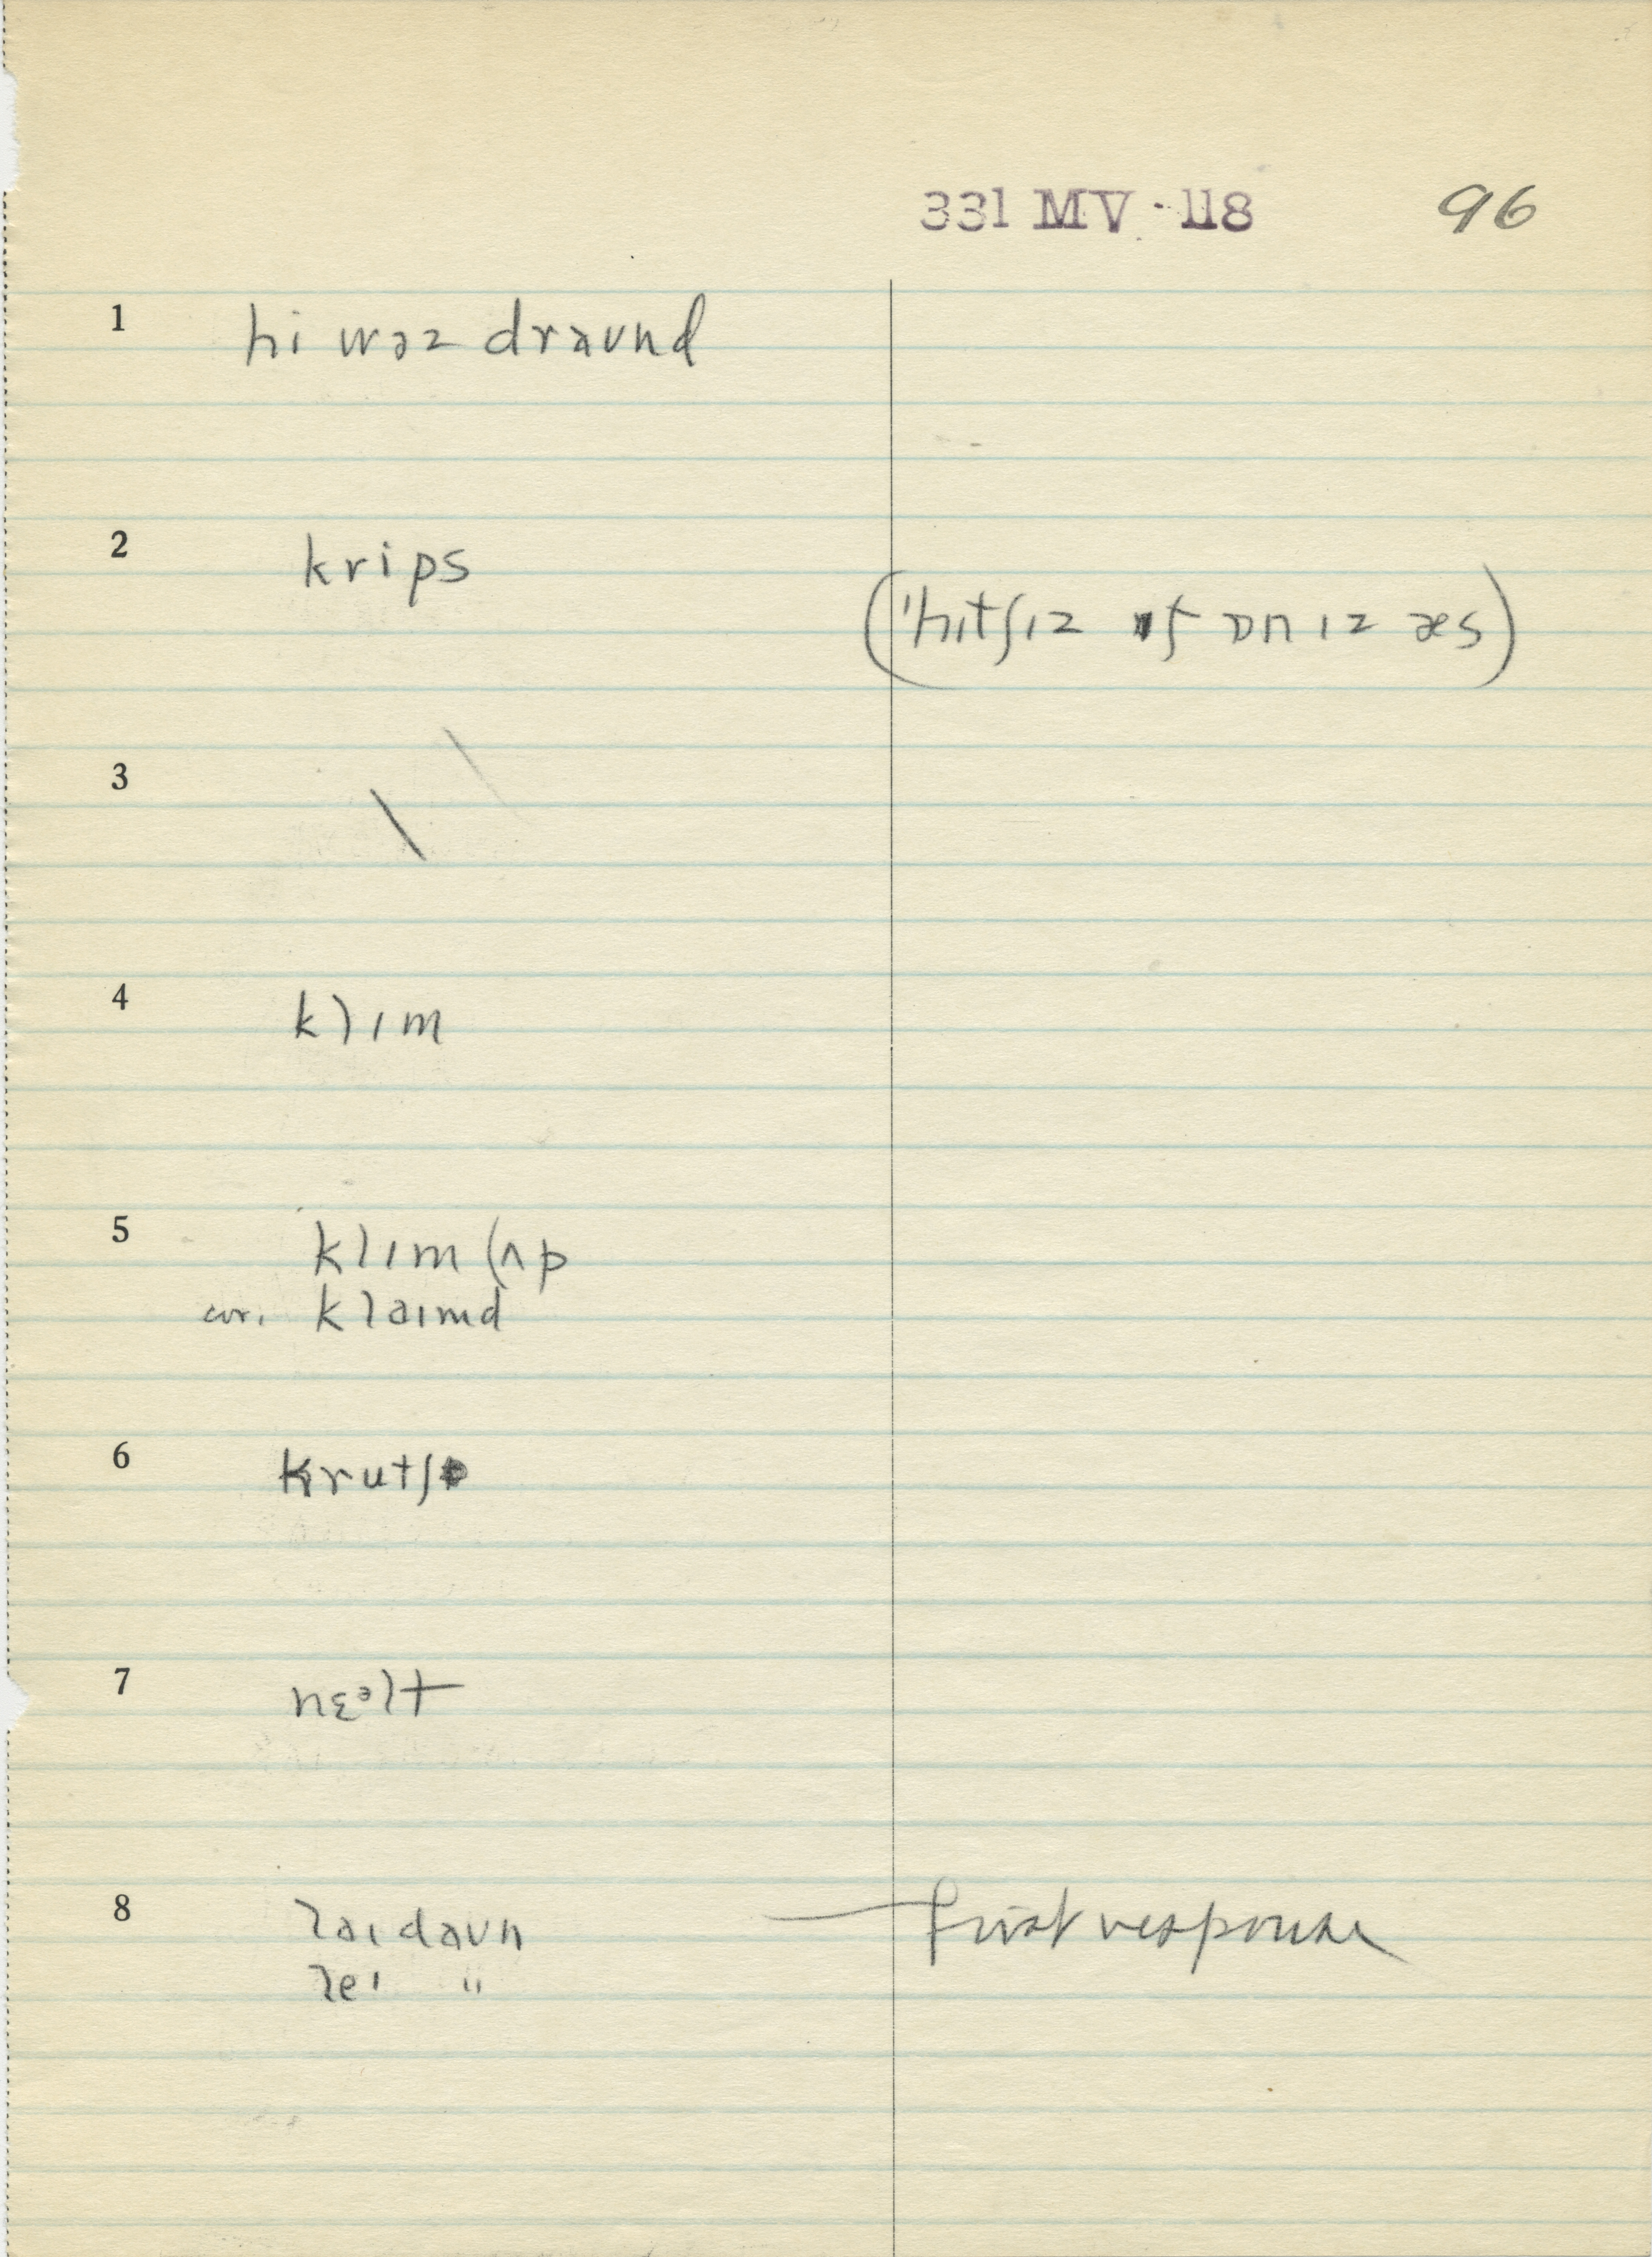 331 MV · 118 96
1 hi wəz draʊnd
2 krips
('hɪtʃɪz ɒn ɪz æs)
3 \
4 klɪm
5 klɪm (ʌp
cor. klaɪmd
6 krutʃ
7 nɛᵊlt
8 laɪ daʊn — first response
leɪ "